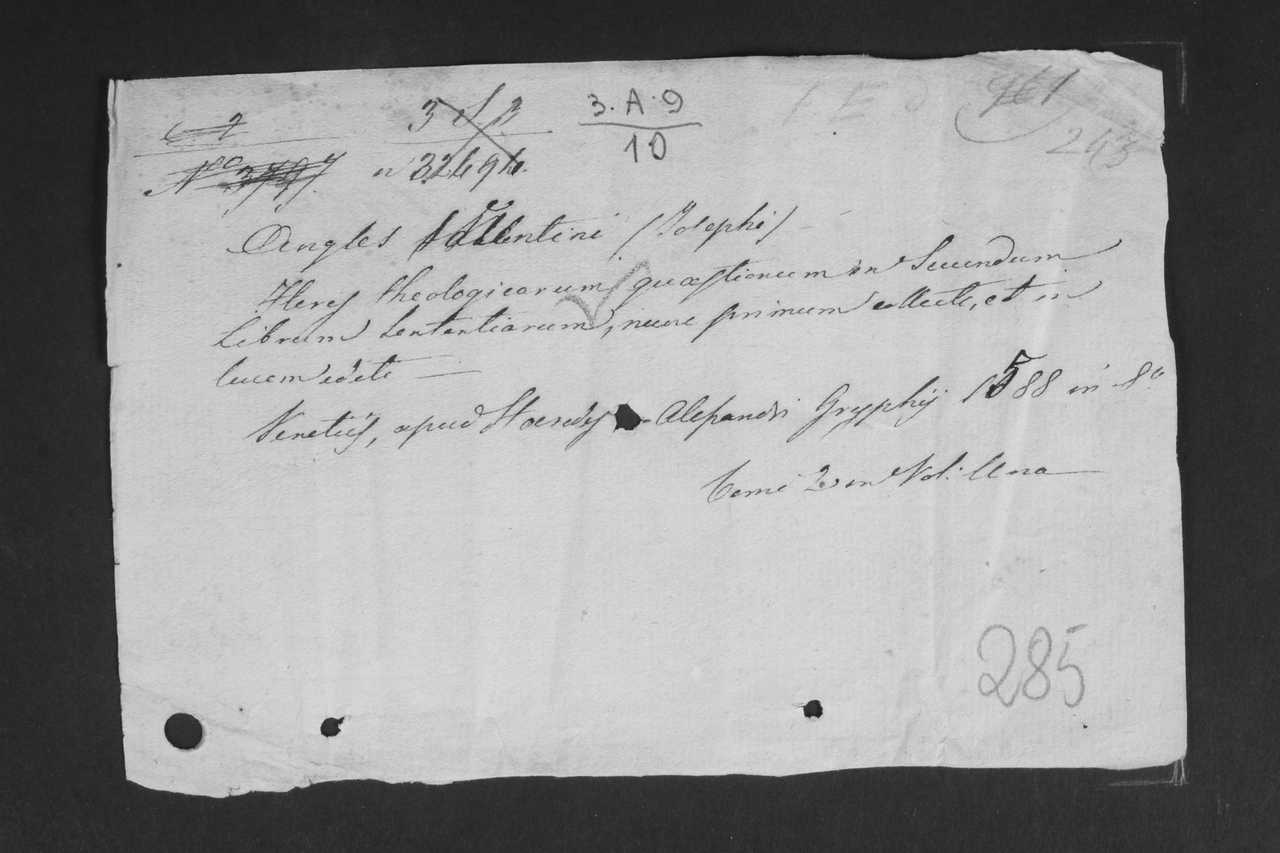 3. A. 9
10
961
243
Nº 3797 nº 32494.
Angles Valentini (Josephi)
Flores theologicarum quæstionum in Secundum
Librum Sententiarum, nunc primum collecti, et in
lucem editi
Venetiis, apud Hæredes Alexandri Gryphij 1588 in 8º
Tomi 2 in Vol: Uno
285